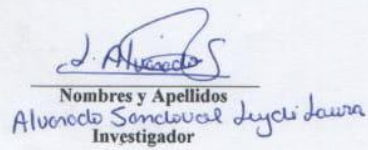 J. Alvarado S
Nombres y Apellidos
Alvarado Sandoval Leydi Laura
Investigador